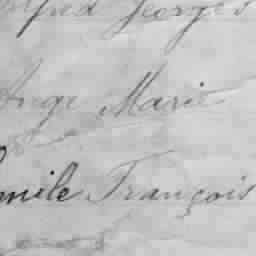 Georges
Ange Marie
Emile François